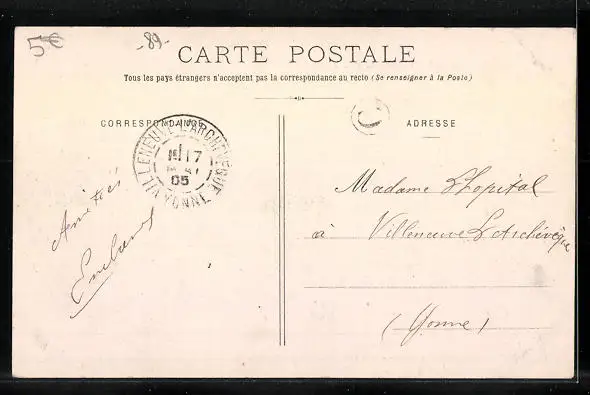 5€
-89-
CARTE POSTALE
Tous les pays étrangers n'acceptent pas la correspondance au recto (Se renseigner à la Poste)
CORRESPONDANCE
ADRESSE
VILLENEUVE-L'ARCHEVEQUE
17
05
YONNE
C
Amitiés
Madame Lhopital
à Villeneuve L'Archévêque
(Yonne)